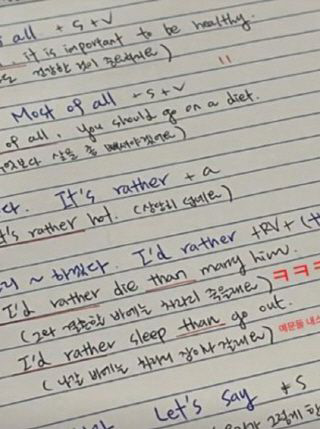 all + S + V
it is important to be healthy.
"
Most of all + S + V
of all, you should go on a diet.
다. It's rather + a
It's rather hot. (상당히 덥네요)
~ 하겠다. I'd rather + RV + (t
I'd rather die than marry him.
(그와 결혼할 바에는 차라리 죽을래요) ㅋㅋㅋ
I'd rather sleep than go out.
(나갈 바에는 차라리 잠이나 잘래요) 예문들 내스
Let's say + S